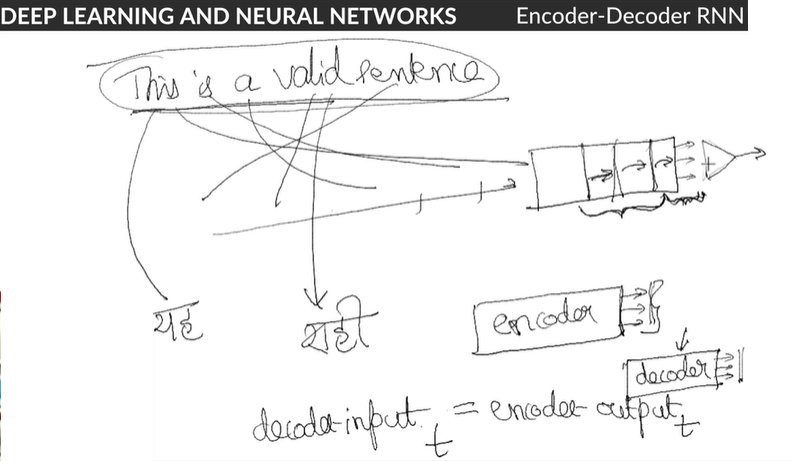 DEEP LEARNING AND NEURAL NETWORKS Encoder-Decoder RNN
This is a valid sentence
यह सही
encoder
decoder
decoder input t = encoder output t